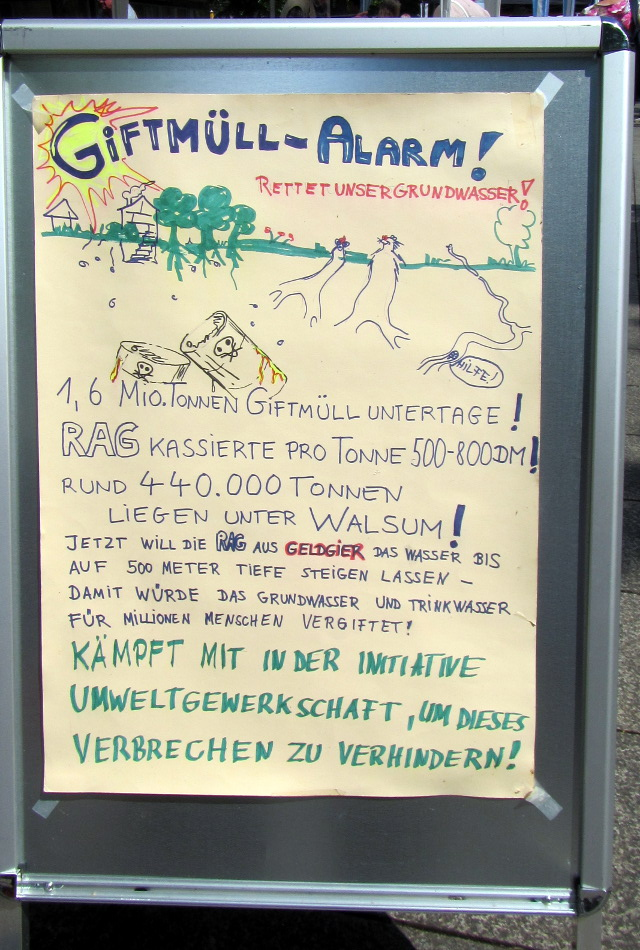 GIFTMÜLL-ALARM!
RETTET UNSER GRUNDWASSER!
HILFE!
1,6 MIO. TONNEN GIFTMÜLL UNTERTAGE!
RAG KASSIERTE PRO TONNE 500-800DM!
RUND 440.000 TONNEN
LIEGEN UNTER WALSUM!
JETZT WILL DIE RAG AUS GELDGIER DAS WASSER BIS
AUF 500 METER TIEFE STEIGEN LASSEN –
DAMIT WÜRDE DAS GRUNDWASSER UND TRINKWASSER
FÜR MILLIONEN MENSCHEN VERGIFTET!
KÄMPFT MIT IN DER INITIATIVE
UMWELTGEWERKSCHAFT, UM DIESES
VERBRECHEN ZU VERHINDERN!